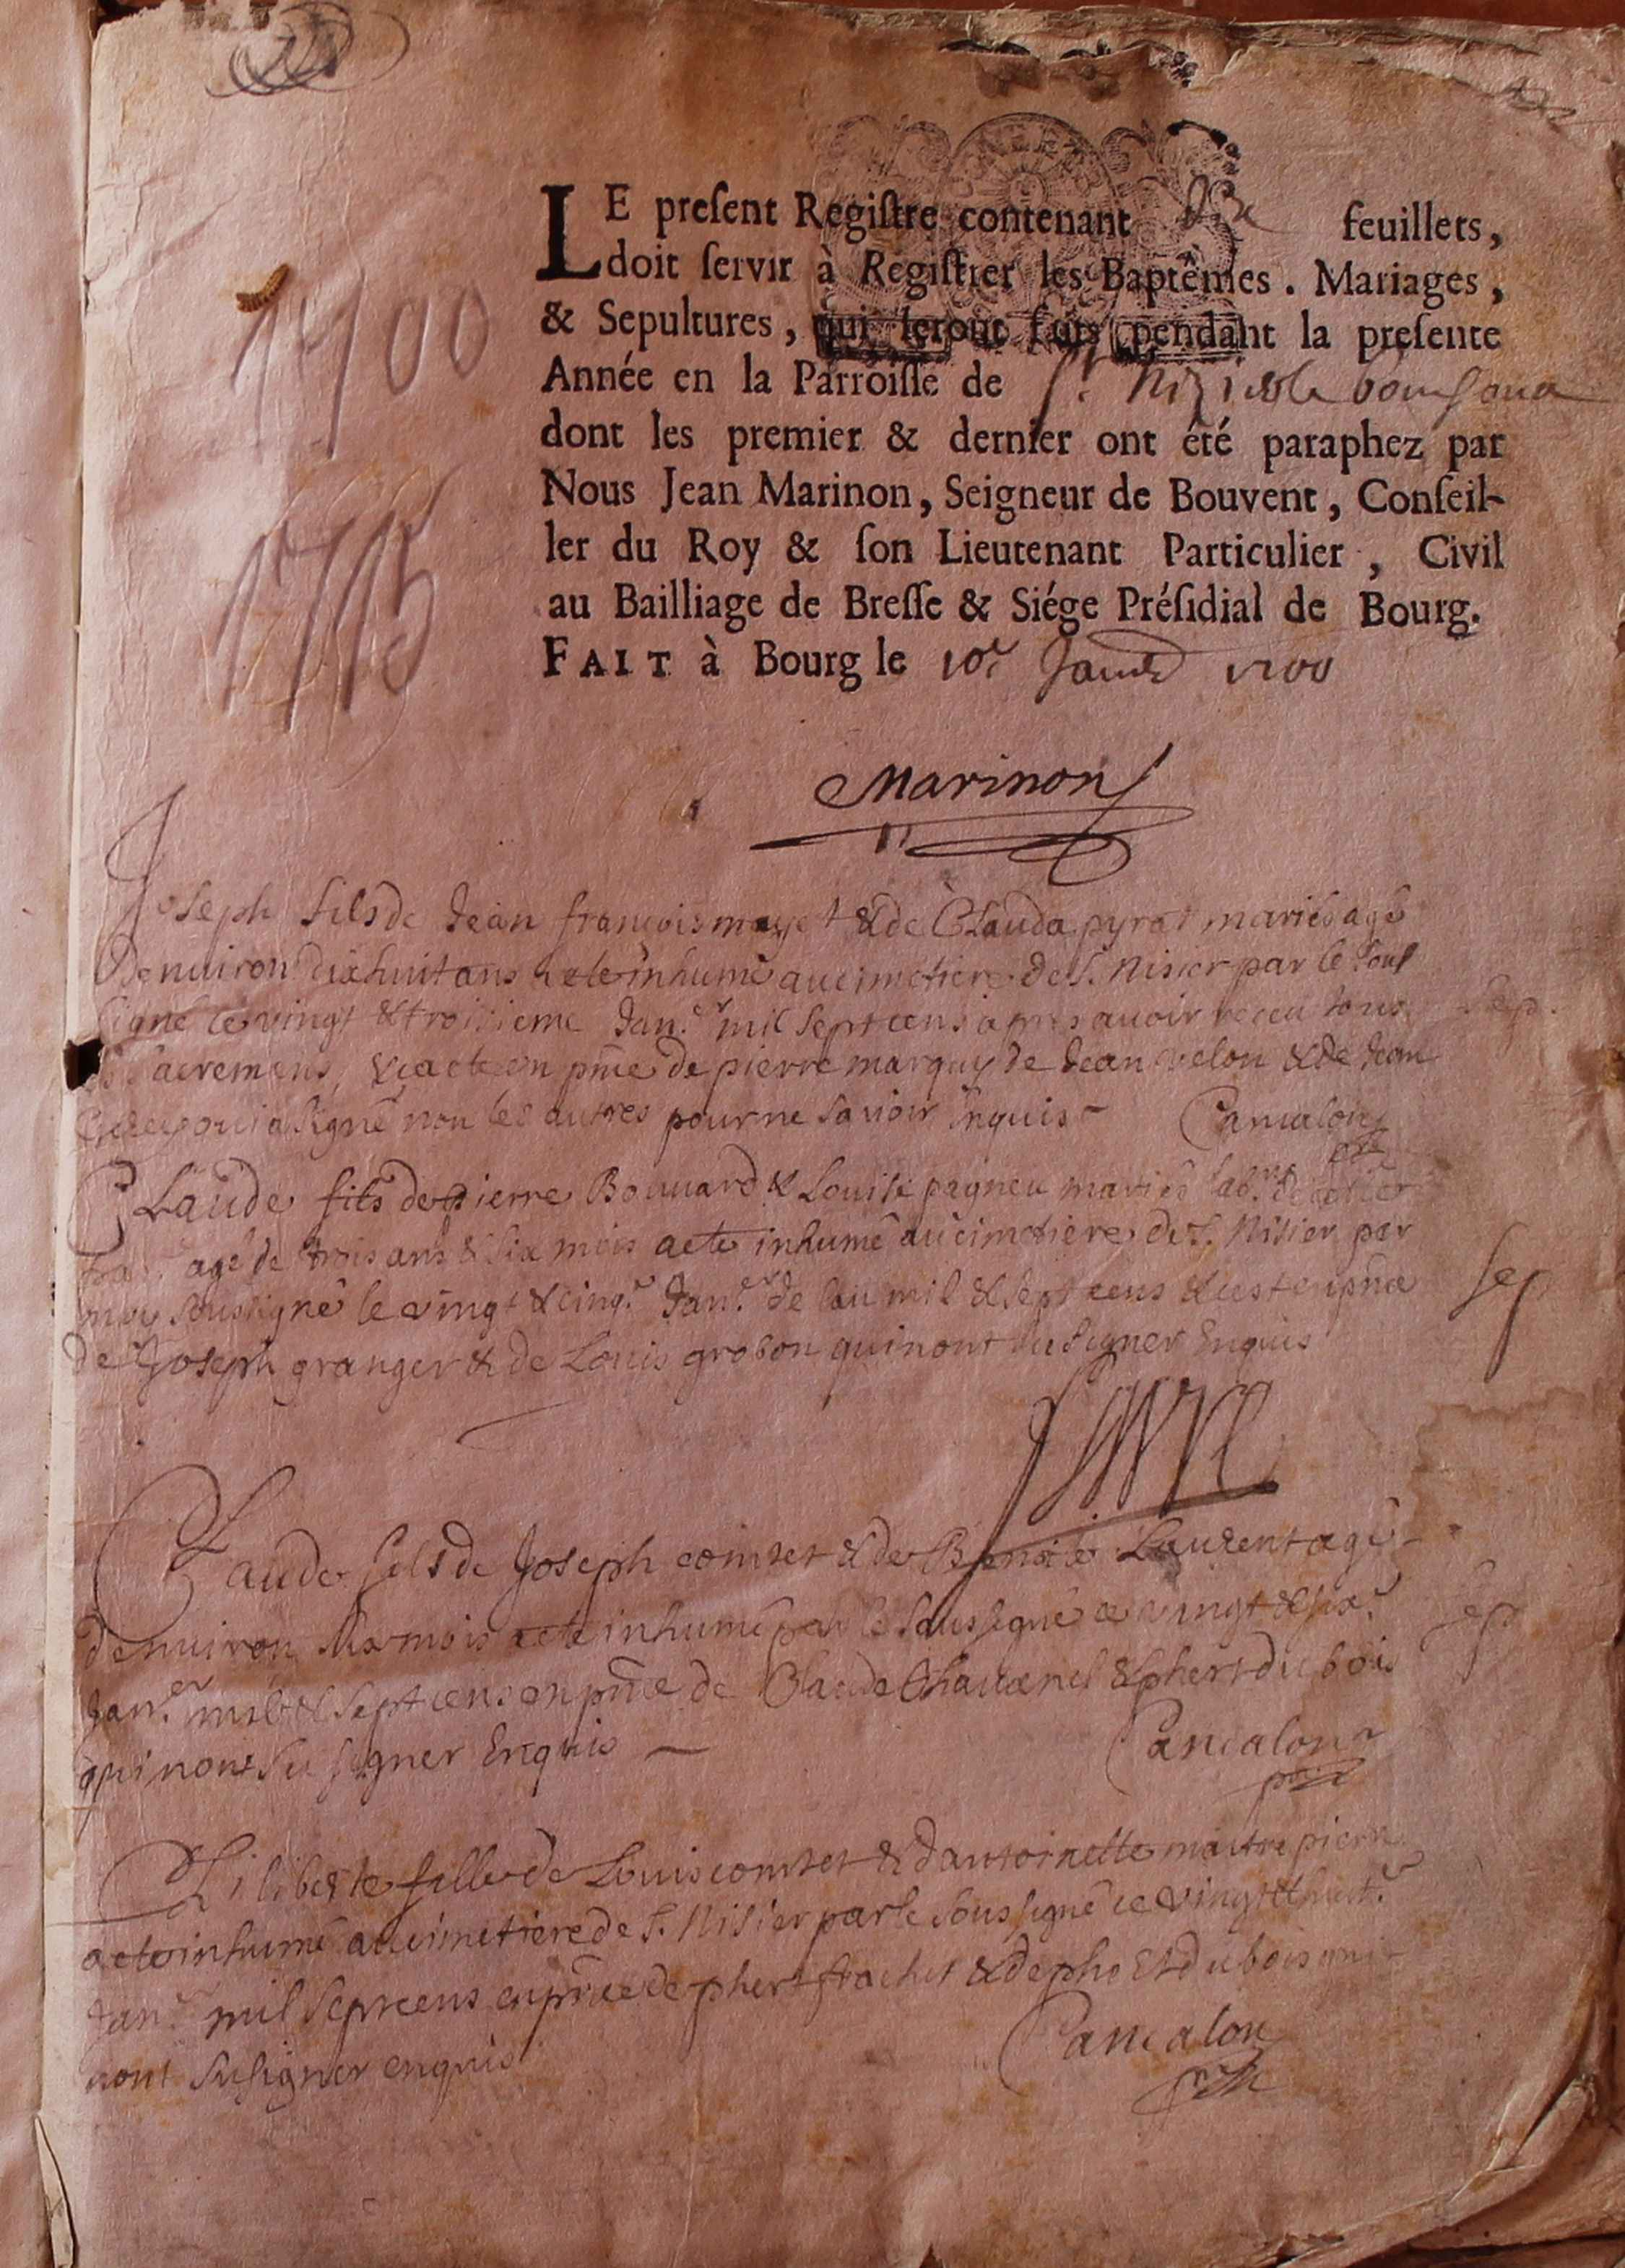 LE preſent Regiſtre contenant dix feuillets,
doit ſervir à Regiſtrer les Baptêmes. Mariages,
& Sepultures, qui ſeront faits pendant la preſente
Année en la Parroiſſe de St. Nizier le
dont les premier & dernier ont été paraphez par
Nous Jean Marinon, Seigneur de Bouvent, Conſeil-
ler du Roy & ſon Lieutenant Particulier, Civil
au Bailliage de Breſſe & Siége Préſidial de Bourg.
FAIT à Bourg le 10e 1700
1700
1715
Marinon
Joseph fils de Jean françois & de Clauda pyrat mariés agé
denuiron dixhuit ans a ete inhumé au cimetiere de S. Nisier par le sous
signé ce vingt & troisieme Jan.er mil sept cens apres auoir receu tous
sep.
sacremens, & acte en pñce de pierre marquis de Jean velon & de Jean
a signé non les autres pour ne sauoir enquis
Cancalon
Claude fils de pierre Bouuard & Louise pagneu mariés
agé de trois ans & six mois a ete inhumé au cimetiere de S. Nisier par
moy soussigné le vingt & cinq.e Jan.er de lan mil & sept cens & cest en pñce
sep
de Joseph granger & de Louis grobon qui nont su signer Enquis
Claude fils de Joseph comtet & de Laurent agé
denuiron six mois a ete inhumé par le soussigné ce vingt & six.e
sep
Jan.er mil & sept cens en pñce de Claude & phert dubois
qui nont su signer Enquis
Cancalon
filiberte fille de Louis comtet & dantoinette maitrepierre
a ete inhumé au cimetiere de S. Nisier par le sous signé ce vingt & huit.e
Jan.er mil sept cens en pñce de phert & de dubois qui
nont su signer enquis
Cancalon